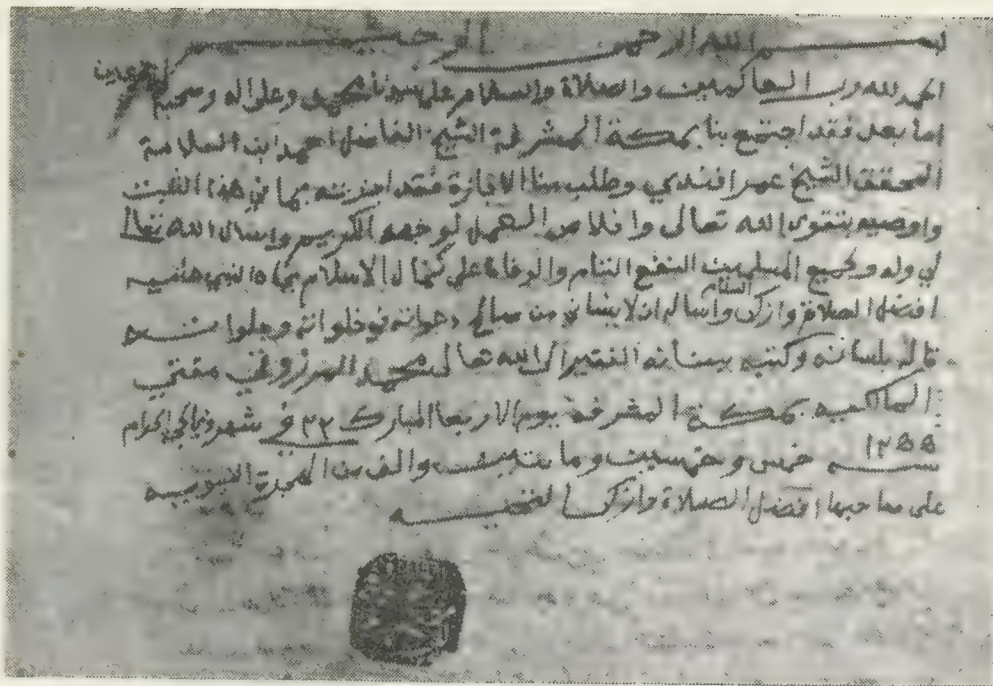 بسم الله الرحمن الرحيم
الحمد لله رب العالمين والصلاة والسلام على سيدنا محمد وعلى اله وصحبه اجمعين
اما بعد فقد اجتمع بنا بمكة المشرفة الشيخ الفاضل احمد ابن العلامة
المحقق الشيخ عمر افندي وطلب منا الاجازة فقد اجزته بما في هذا الثبت
واوصيه بتقوى الله تعالى واخلاص العمل لوجهه الكريم واسال الله تعالى
لي وله ولجميع المسلمين النفع التام والوفاة على كمال الاسلام بجاه النبي عليه
افضل الصلاة وازكى السلام واساله ان لا ينساني من صالح دعواته في خلواته وجلواته
قاله بلسانه وكتبه ببنانه الفقير الى الله تعالى محمد المرزوقي مفتي
المالكيه بمكة المشرفة يوم الاربعا المبارك ٢٣ في شهر ذي الحجة الحرام
١٢٥٥ سنه خمس وخمسين ومائتين والف من الهجرة النبويه
على صاحبها افضل الصلاة وازكى التحيه